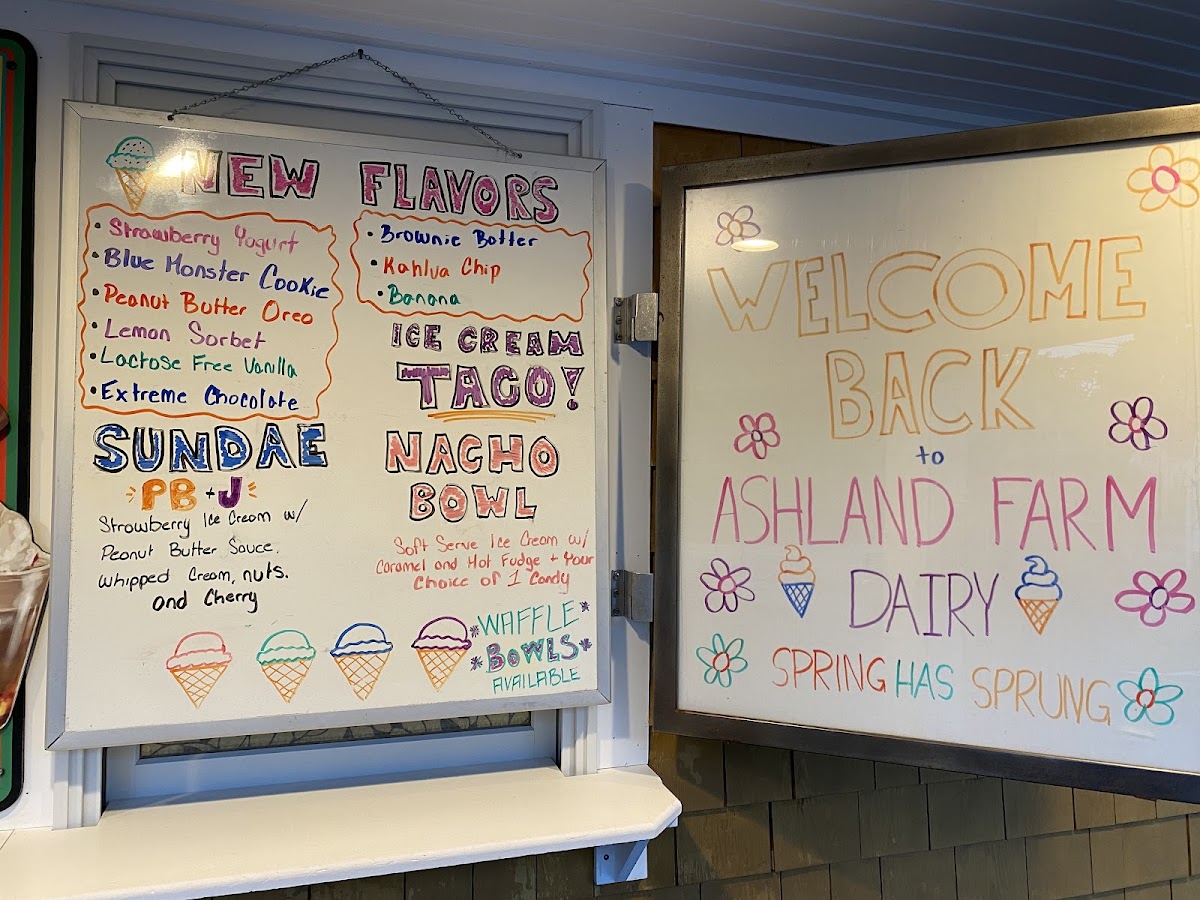 NEW FLAVORS
• Strawberry Yogurt
• Blue Monster Cookie
• Peanut Butter Oreo
• Lemon Sorbet
• Lactose Free Vanilla
• Extreme Chocolate
• Brownie Batter
• Kahlua Chip
• Banana
ICE CREAM
TACO!
SUNDAE
PB + J
Strawberry Ice Cream w/
Peanut Butter Sauce.
Whipped Cream, nuts.
and Cherry
NACHO
BOWL
Soft Serve Ice Cream w/
Caramel and Hot Fudge + Your
Choice of 1 Candy
*WAFFLE*
*BOWLS*
AVAILABLE
WELCOME
BACK
to
ASHLAND FARM
DAIRY
SPRING HAS SPRUNG